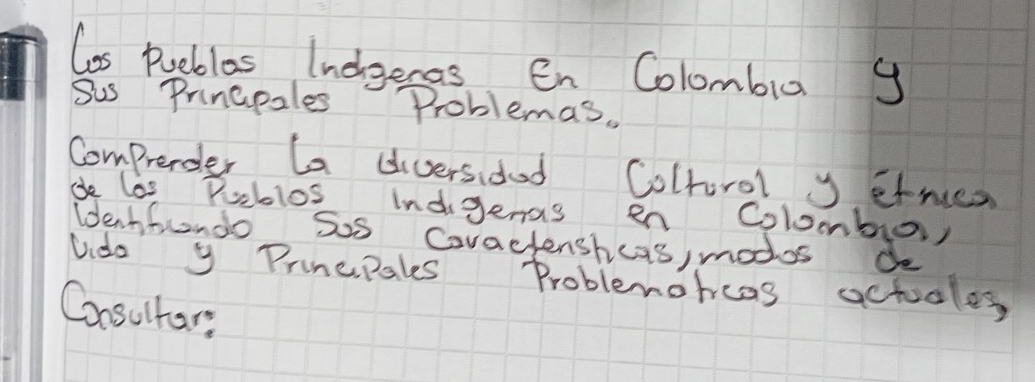 Los Pueblos Indigenas En Colombia y
Sus Principales Problemas.
Comprender la diversidad Coltural y étnica
de los Pueblos indigenas en Colombia,
Identificando Sus Caracteristicas, modos de
Vida y Principales Problematicas actuales,
Consultar: